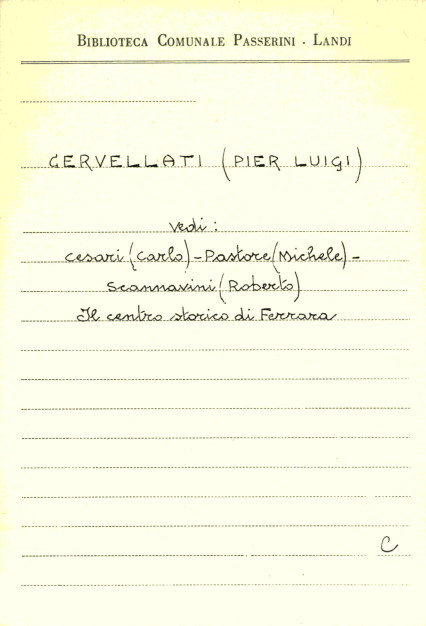 BIBLIOTECA COMUNALE PASSERINI - LANDI
CERVELLATI (PIER LUIGI)
Vedi:
Cesari (Carlo) - Pastore (Michele) -
Scannavini (Roberto)
Il centro storico di Ferrara
C